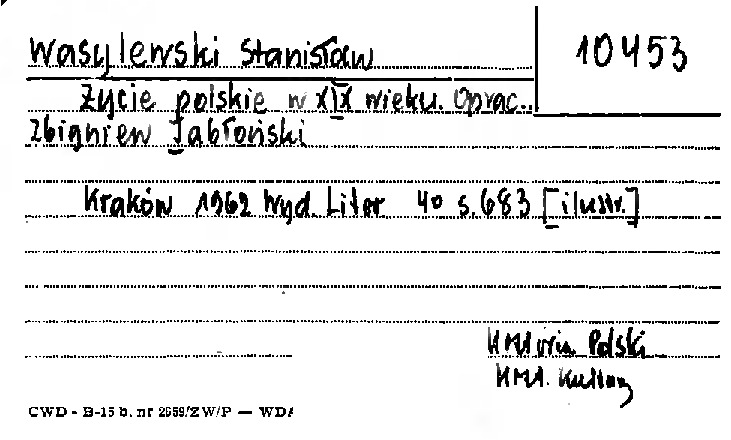 Wasylewski Stanisław
10453
Życie polskie w XIX wieku. Oprac.
Zbigniew Jabłoński
Kraków 1962 Wyd. Liter 4° s. 683 [ilustr.]
Historia Polski
Hist. Kultury
CWD - B-15 b. nr 2659/ZW/P — WDA